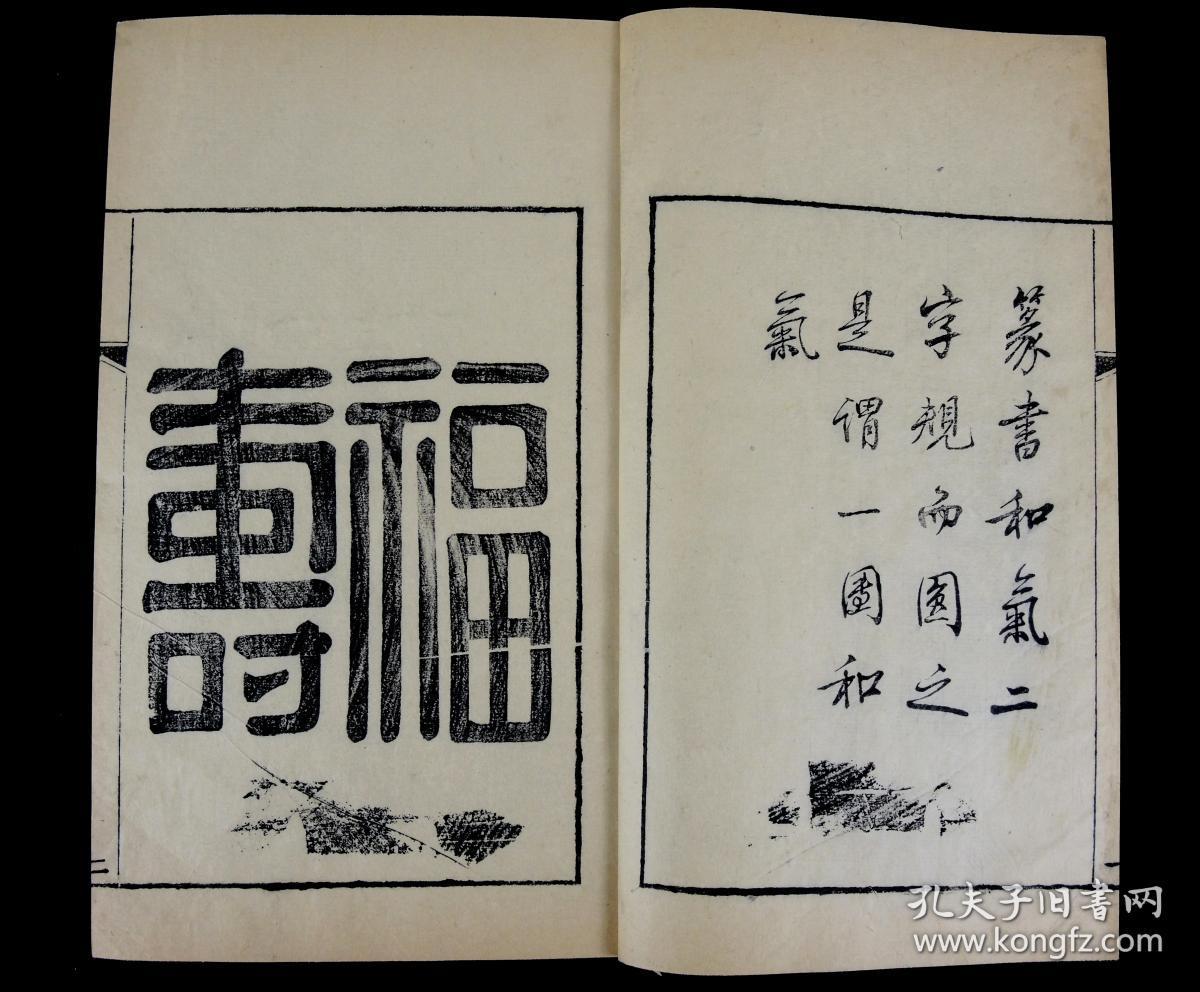 篆書和氣二
字規而圓之
是謂一團和
氣
一
福
壽
二
孔夫子旧书网
www.kongfz.com